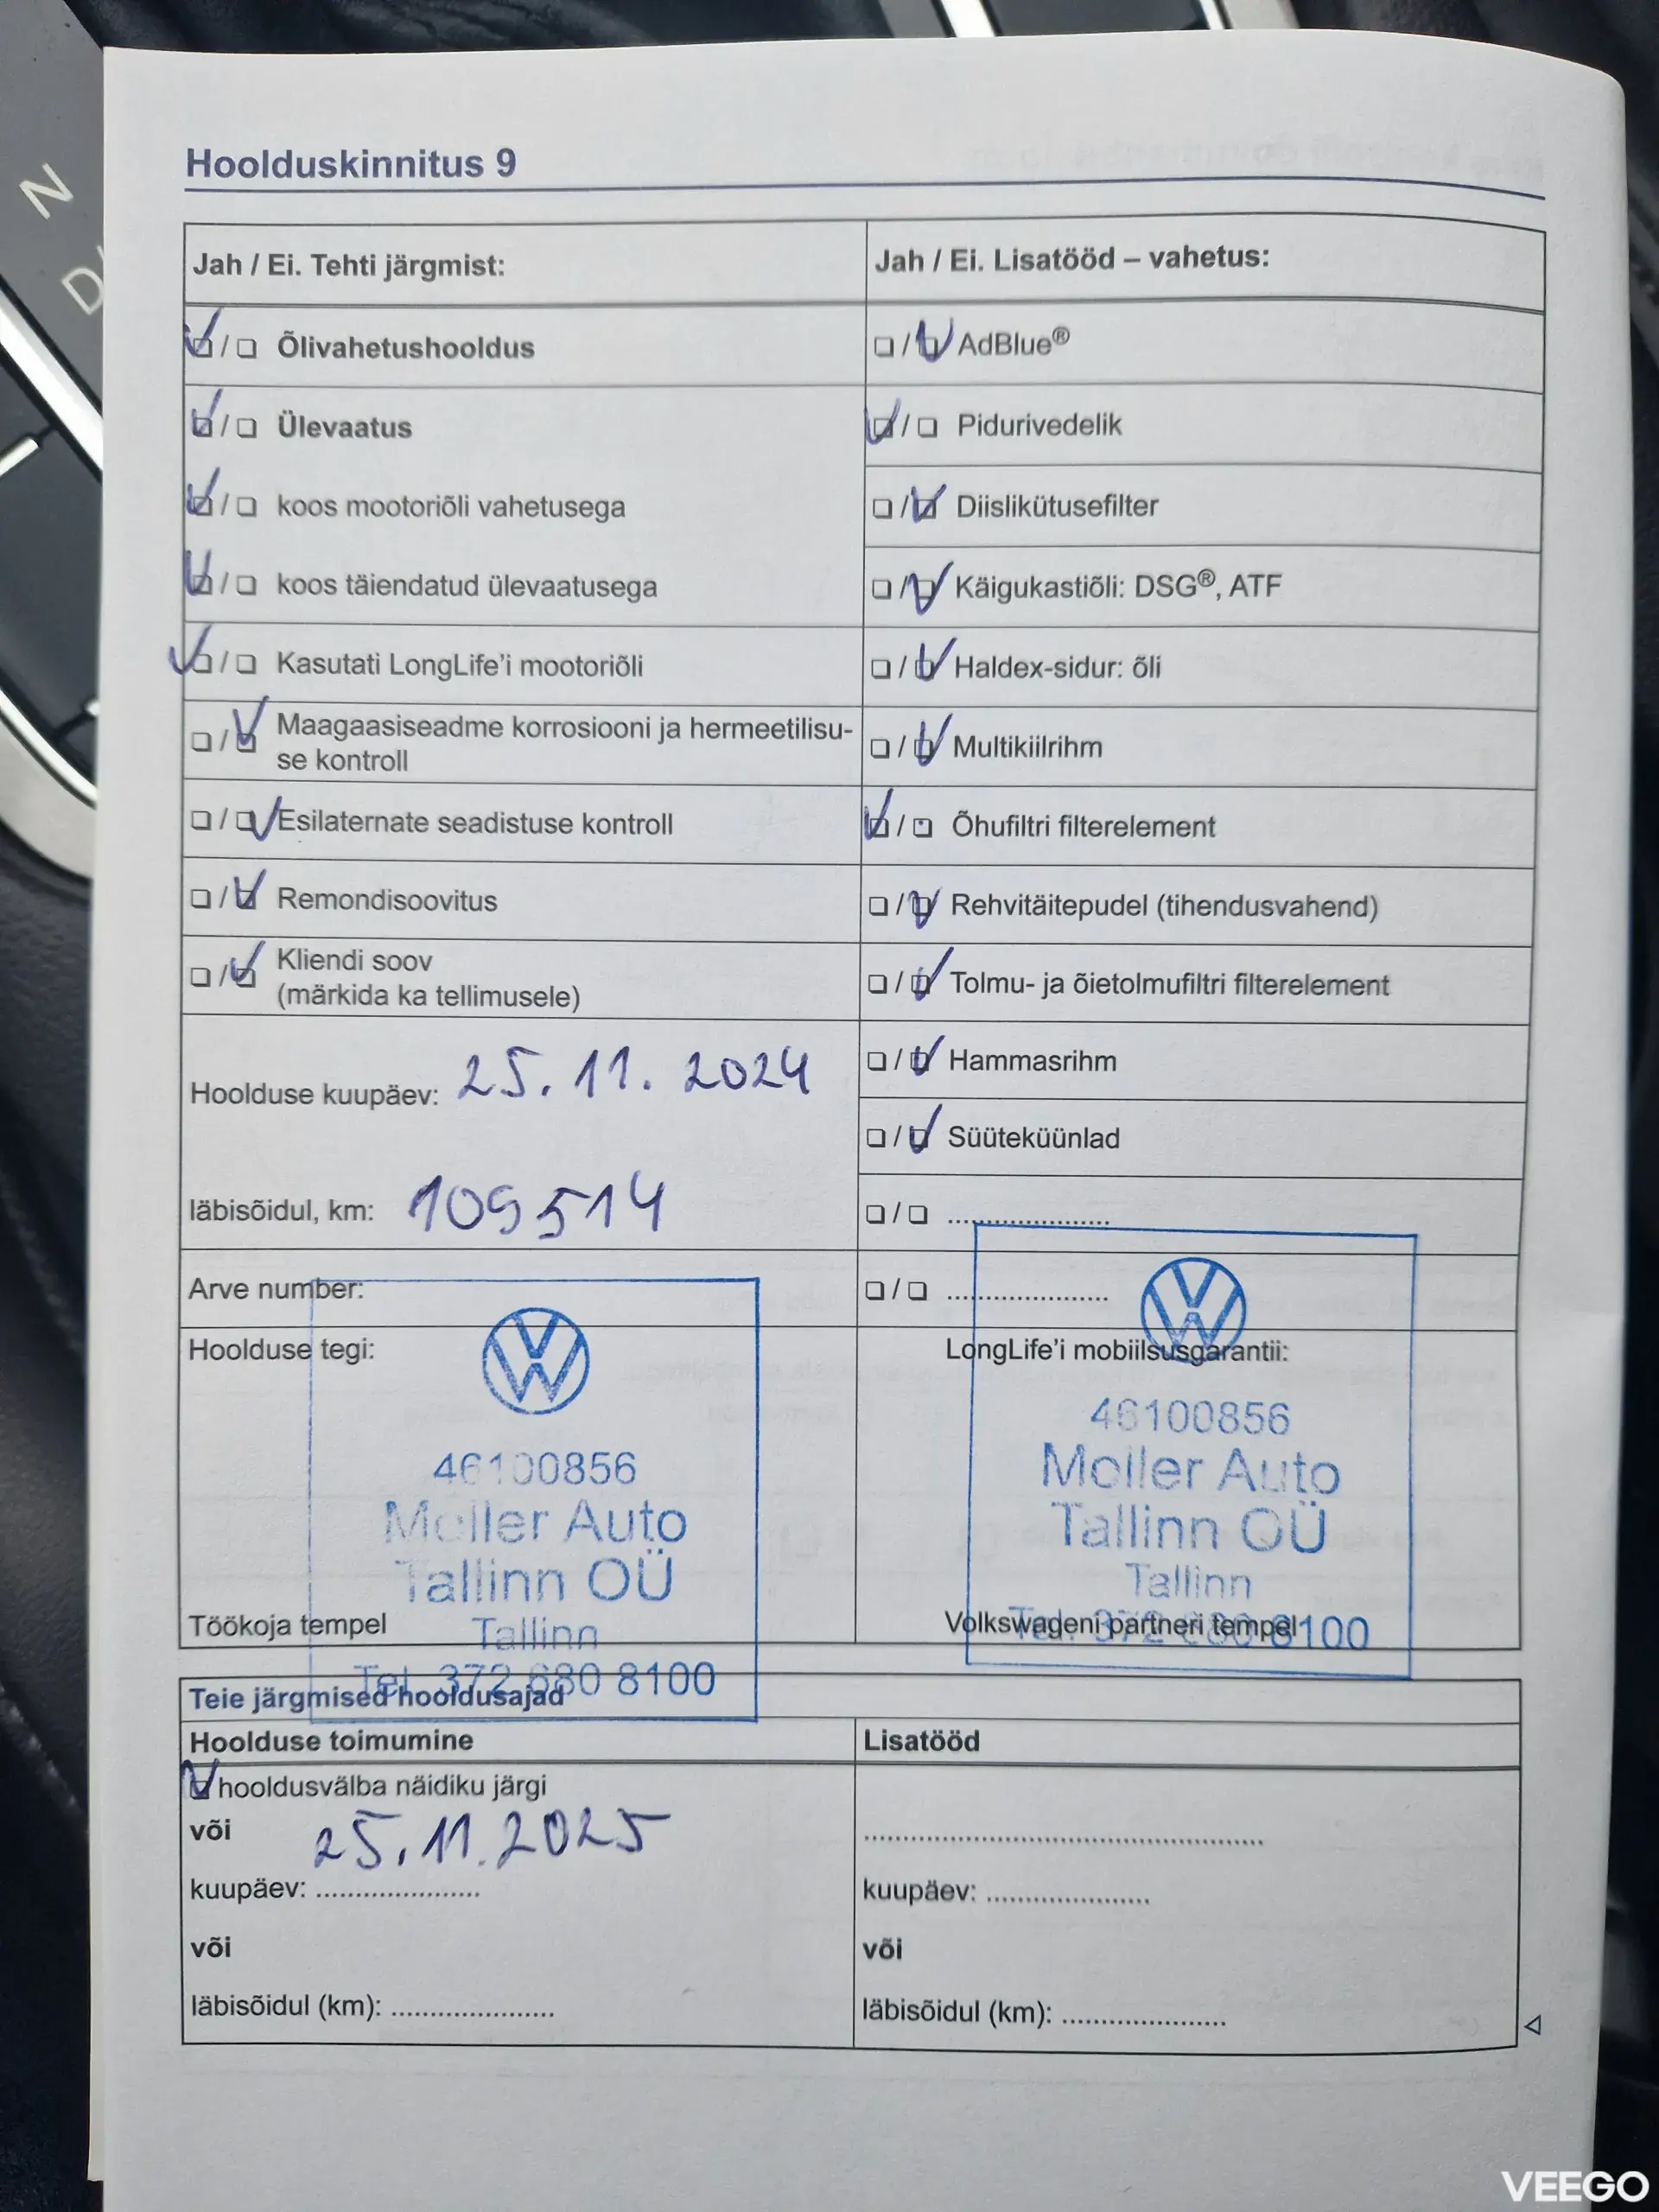 N
D/
Hoolduskinnitus 9
Jah / Ei. Tehti järgmist:
Õlivahetushooldus
Ülevaatus
koos mootoriõli vahetusega
koos täiendatud ülevaatusega
Kasutati LongLife'i mootoriõli
Maagaasiseadme korrosiooni ja hermeetilisu-
se kontroll
Esilaternate seadistuse kontroll
Remondisoovitus
Kliendi soov
(märkida ka tellimusele)
Hoolduse kuupäev: 25.11.2024
läbisõidul, km: 109514
Arve number:
Hoolduse tegi:
46100856
Moller Auto
Tallinn OÜ
Tallinn
Tel. 372 680 8100
Töökoja tempel
Jah / Ei. Lisatööd – vahetus:
AdBlue®
Pidurivedelik
Diislikütusefilter
Käigukastiõli: DSG®, ATF
Haldex-sidur: õli
Multikiilrihm
Õhufiltri filterelement
Rehvitäitepudel (tihendusvahend)
Tolmu- ja õietolmufiltri filterelement
Hammasrihm
Süüteküünlad
LongLife'i mobiilsusgarantii:
46100856
Moller Auto
Tallinn OÜ
Tallinn
Tel. 372 680 8100
Volkswageni partneri tempel
Teie järgmised hooldusajad
Hoolduse toimumine
hooldusvälba näidiku järgi
või
25.11.2025
kuupäev: ....................
või
läbisõidul (km): ....................
Lisatööd
kuupäev: ....................
või
läbisõidul (km): ....................
VEEGO